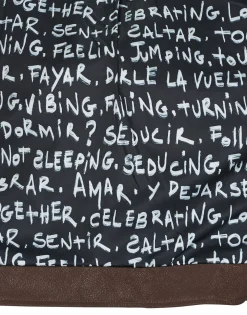 OGETHER, CELEBRATING, LO
AR. SENTIR. SALTAR. TO
ING. FEELING. JUMPING, TOU
R. FAYAR. DARLE LA VUELT
G, VIBING, FAILING, TURNIN
DORMIR? SEDUCIR. Foll
NOT SLEEPING, SEDUCING, FU
BRAR. AMAR Y DEJARSE
OGETHER, CELEBRATING, LO
AR. SENTIR. SALTAR. TO
ING. FEELING. JUMPING, TOU